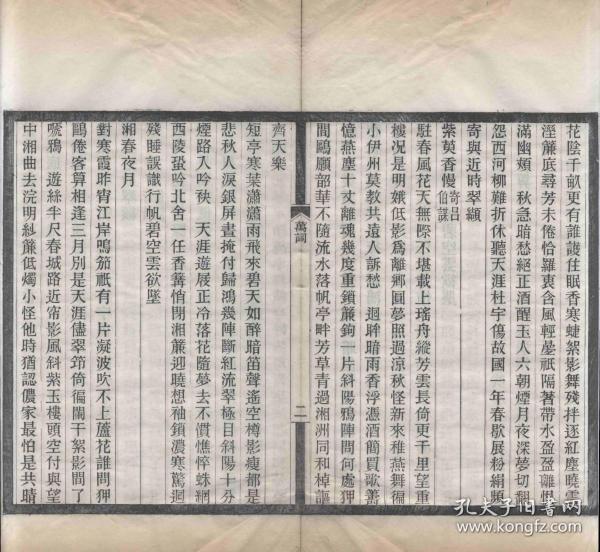 花陰千畝更有誰護住眠香寒蜨絮影舞殘拌逐紅塵曉雲
溼簾底尋芳未倦恰羅衷含風輕晏祇隔著帶水盈盈離恨
滿幽頰　秋急暗愁絕正酒醒玉人六朝煙月夜深夢切翻
怨西河柳難折休聽天涯杜宇傷故國一年春歇展粉絹頻
寄與近時翠纈
紫萸香慢寄呂伯謀
駐春風花天無際不堪載上瑤舟縱芳雲長倚更千里望重
樓况是明娥低影爲離鄉圓夢照過涼秋怪新來稚燕舞徊
小伊州莫教共遠人訴愁　迴眸暗雨香浮憑酒簡買歌籌
憶燕塵十丈離魂幾度重鎖簾鉤一片斜陽鴉陣問何處狎
閒鷗願韶華不隨流水落帆亭畔芳草青過湘洲同和棹謳
萬詞
二
齊天樂
短亭寒葉瀟瀟雨飛來碧天如醉暗笛聲遙空樽影瘦都是
悲秋人淚銀屏晝掩付歸鴻幾陣斷紅流翠極目斜陽十分
煙路入吟秧　天涯遊屐正冷落花隨夢去不慣憔悴蛛網
西陵蛩吟北舍一任香篝悄閉湘簾迎曉想袖鎖濃寒驚迴
殘睡誤識行帆碧空雲欲墜
湘春夜月
對寒霞昨宵江岸鳴笳祇有一片凝波吹不上蘆花誰問狎
鷗倦客算相逢三月別是天涯儘翠筇倚徧闌干絮影閒了
嗁鴉　遊絲半尺春城路近帘影風斜紫玉樓頭空付與望
中湘曲去浣明紗簾低燭小怪他時猶認儂家最怕是共晴
孔夫子旧书网
www.kongfz.com